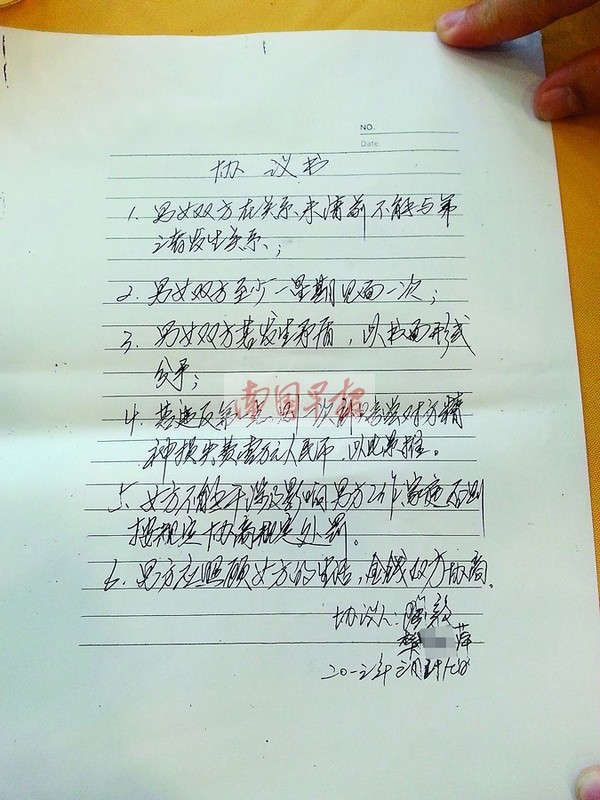 NO.
Date.
协 议 书
1. 男女双方在关系未清前不能与第
三者发生关系、;
2. 男女双方至少一星期见面一次;
3. 男女双方若发生矛盾,以书面形式
分手;
南国早报
4. 若违反第一点,
神损失费壹万元人民币,以此类推。
5. 女方不能干涉及影响男方工作、家庭否则
按规定协商规定处罚。
6. 男方应照顾女方的生活,金钱双方协商。
协议人:
樊 萍